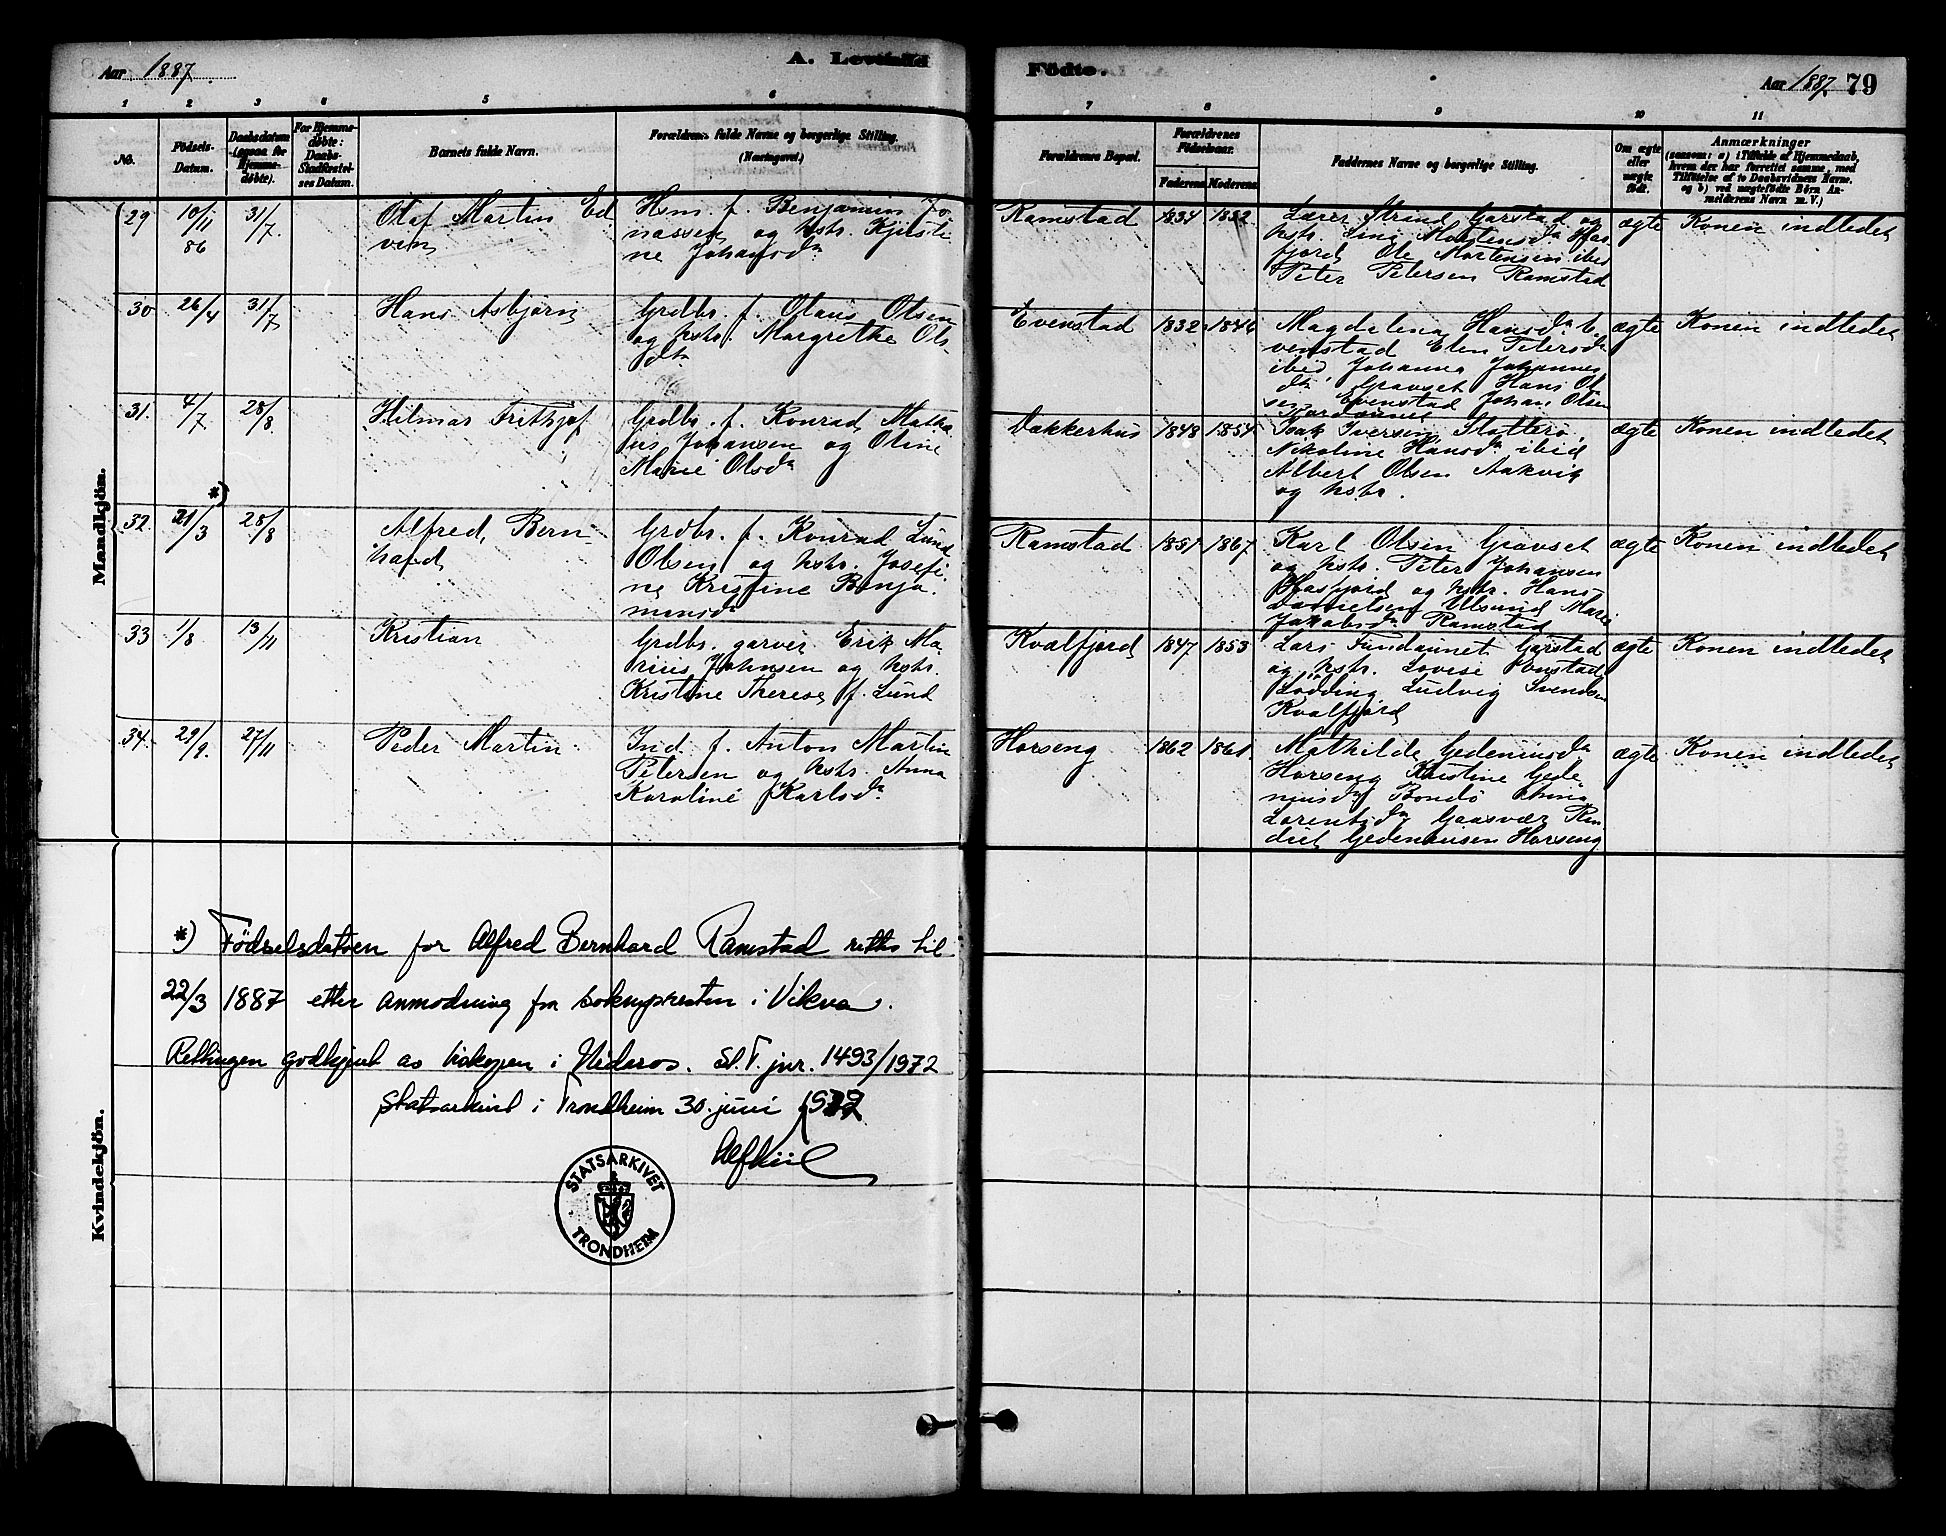 Aar 1887.
A. Levende
Fødte.
Aar 1887 79
1 2 3 4 5 6 7 8 9 10 11
No.
Fødsels-
Datum.
Daabsdatum
(ogsaa for
Hjemme-
døbte).
For Hjemme-
døbte:
Daabs-
Stadfæstel-
ses Datum.
Barnets fulde Navn.
Forældrenes fulde Navne og borgerlige Stilling.
(Næringsvei.)
Forældrenes Bopæl.
Forældrenes
Fødselsaar.
Faderens Moderens
Faddernes Navne og borgerlige Stilling.
Om ægte
eller
uægte
født.
Anmærkninger
(saasom: a) i Tilfælde af Hjemmedaab,
hvem der har forrettet samme, med
Tilføielse af to Daabsvidners Navne,
og b) ved uægtefødte Børn An-
melderens Navn m. V.)
Mandkjön.
29 10/11 86 31/7 Olaf Martin Ed
vin
Hsm. f. Benjamin Jo
nassen og hstr. Kjirsti
ne Johansdr
Ramstad 1834 1852
Lærer Strand Garstad og
hstr. Lina Mortensdr Has
fjord Ole Mortensen ibid
Peter Petersen Ramstad
ægte Konen indledet
30 26/4 31/7 Hans Asbjørn
Grdbr. f. Olaus Olsen
og hstr. Margrethe Ols-
dtr
Evenstad 1832 1846
Magdalena Hansdr E
venstad Elen Petersdr
ibid Johanna Johannes
dr Gravset Hans Ol
sen Evenstad Johan Olsen
ægte Konen indledet
31. 4/7 28/8 Hilmar Frithjof
Grdbr. f. Konrad Matha
us Johansen og Oline
Marie Olsdr
Vakkerhus 1848 1854
Isak Iversen Slotterø
Nikoline Hansdr ibid
Albert Olsen Aakvik
og hstr.
ægte Konen indledet
*)
32. 21/3 28/8 Alfred Bern-
hard
Grdbr. f. Konrad Lund
Olsen og hstr. Josefi-
ne Kristine Benja-
minsdr
Ramstad 1851 1867
Karl Olsen Gravset
og hstr. Peter Johansen
Hasfjord og hstr. Hans
Danielsen Ulsund Marie
Jakobsdr Ramstad
ægte Konen indledet
33 1/8 13/11 Kristian
Grdbr. garver Erik Ma
rius Johnsen og hstr.
Kristine Therese f. Lund
Kvalfjord 1847 1853
Lars Fundaunet Garstad
og hstr. Lovise Ponstad
Lødding Ludvig Svendsen
Kvalfjord
ægte Konen indledet
34. 29/9. 27/11 Peder Martin
Ind. f. Anton Martin
Petersen og hstr. Anna
Karoline Karlsdr
Horseng 1862 1861.
Mathilde Gedeniusdr
Horseng Kristine Gede
niusdr Bondø
Lorentsdr Gaasvær
Gedeniusen Horseng
ægte Konen indledet
Kvindekjön.
*) Fødselsdatoen for Alfred Bernhard Ramstad rettes til
22/3 1887 etter anmodning fra soknepresten i Vikna.
Rettingen godkjent av biskopen i Nidaros. St.T. jnr. 1493/1972
Statsarkivet i Trondheim 30. juni 1972
Alf Kiil
STATSARKIVET
TRONDHEIM